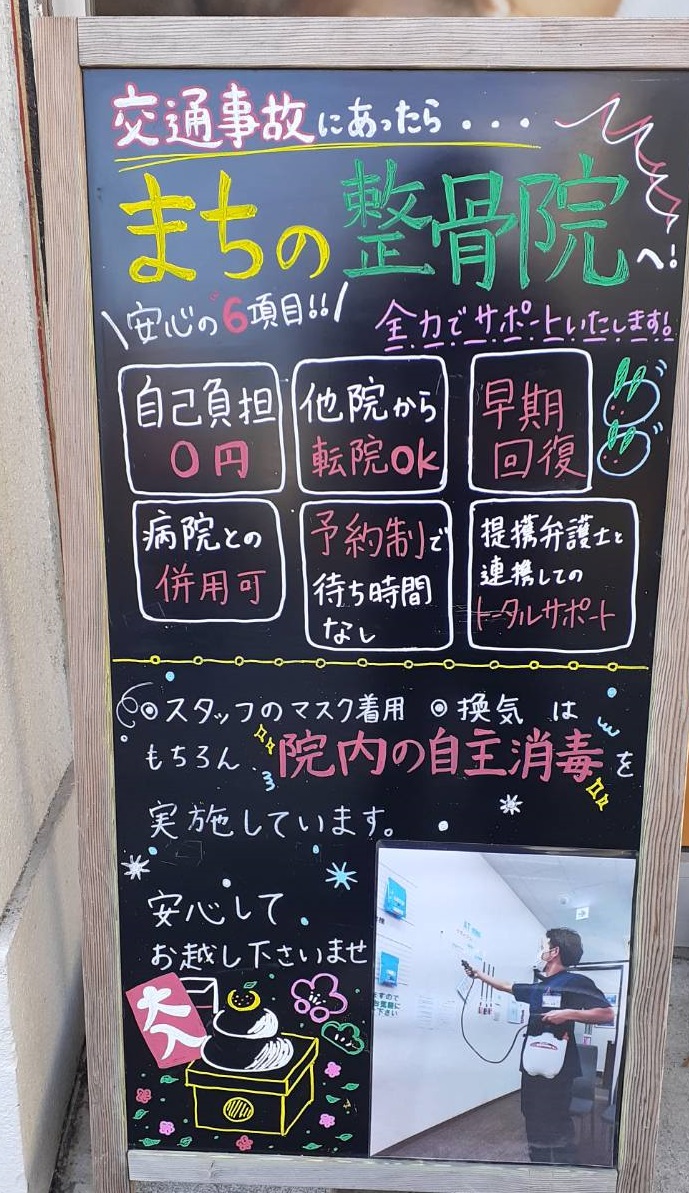 交通事故にあったら・・・
まちの整骨院へ!
安心の6項目!!
全力でサポートいたします!
自己負担
0円
他院から
転院OK
早期
回復
病院との
併用可
予約制で
待ち時間
なし
提携弁護士と
連携しての
トータルサポート
◎スタッフのマスク着用 ◎換気 は
もちろん、院内の自主消毒を
実施しています。
安心して
お越し下さいませ
大入